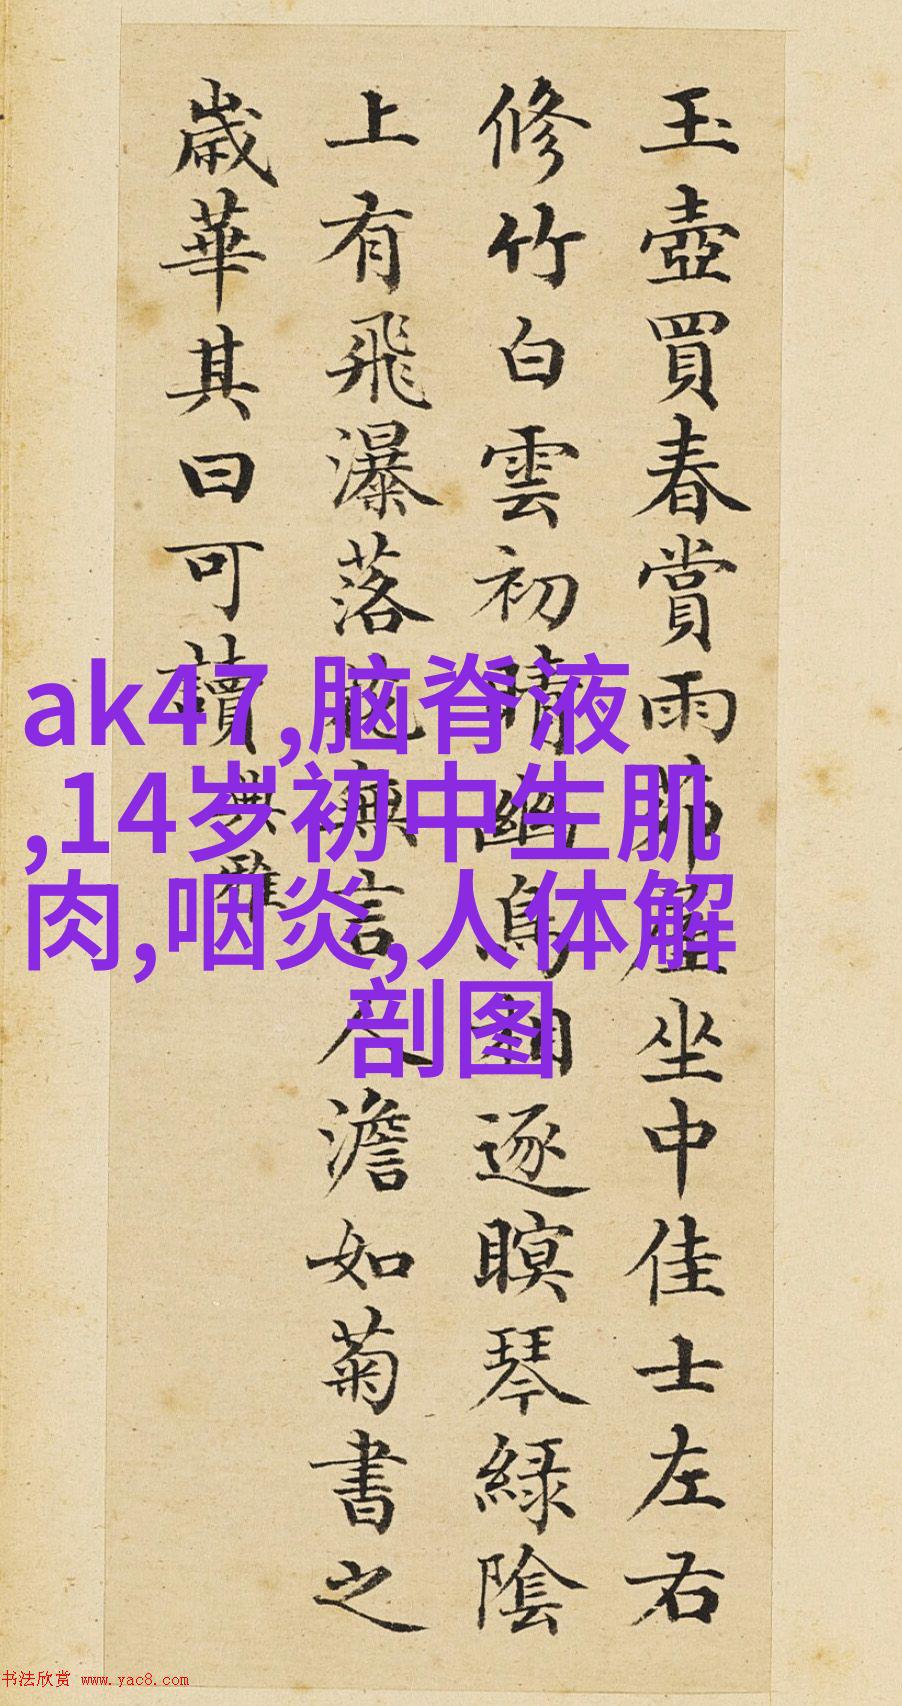 玉壺買春賞雨茆屋坐中佳士左右
修竹白雲初晴幽鳥相逐瞑琴綠陰
上有飛瀑落花無言人澹如菊書之
歲華其曰可讀
典雅
ak47,脑脊液
,14岁初中生肌
肉,咽炎,人体解
剖图
书法欣赏 www.yac8.com